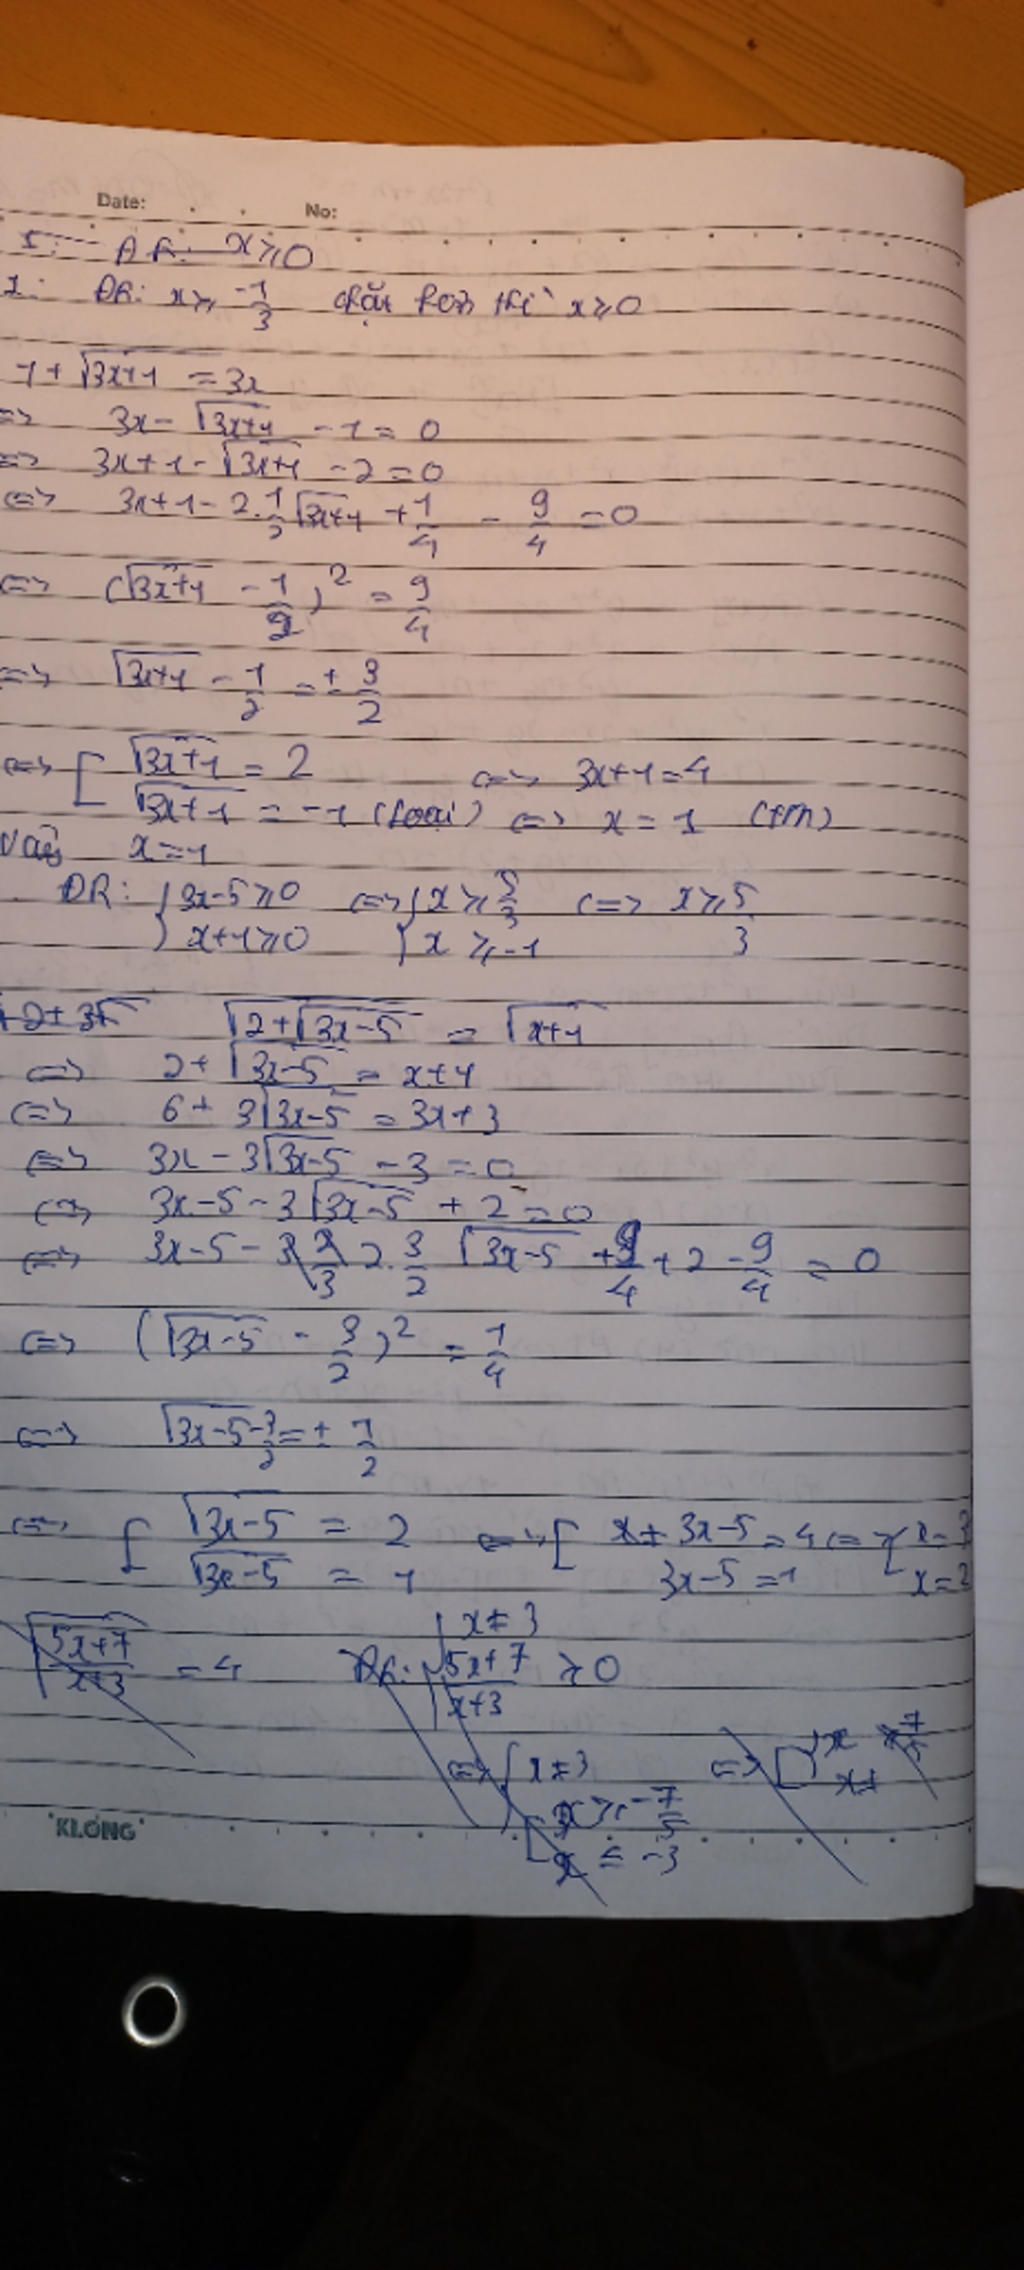 Date: No:
1: ĐK: x ≥ 0
1: ĐK: x ≥ -1/3 chặt hơn thì x ≥ 0
1 + √(3x+1) = 3x
<=> 3x - √(3x+1) - 1 = 0
<=> 3x + 1 - √(3x+1) - 2 = 0
<=> 3x + 1 - 2.1/2 √(3x+1) + 1/4 - 9/4 = 0
<=> (√(3x+1) - 1/2)² = 9/4
<=> √(3x+1) - 1/2 = ± 3/2
<=> [ √(3x+1) = 2 <=> 3x+1 = 4
√(3x+1) = -1 (loại) <=> x = 1 (tm)
Vậy x = 1
ĐK: { 3x-5 ≥ 0 <=> { x ≥ 5/3 <=> x ≥ 5/3
x+1 ≥ 0 { x ≥ -1
√(2 + √(3x-5)) = √(x+1)
<=> 2 + √(3x-5) = x+1
<=> 6 + 3√(3x-5) = 3x+3
<=> 3x - 3√(3x-5) - 3 = 0
<=> 3x-5 - 3√(3x-5) + 2 = 0
<=> 3x-5 - 2.3/2 √(3x-5) + 9/4 + 2 - 9/4 = 0
<=> (√(3x-5) - 3/2)² = 1/4
<=> √(3x-5) - 3/2 = ± 1/2
<=> [ √(3x-5) = 2 <=> [ x+ 3x-5 = 4 <=> [ x = 3
√(3x-5) = 1 3x-5 = 1 x = 2
√((5x+7)/(x+3)) = 4 ĐK: { x ≠ 3
(5x+7)/(x+3) ≥ 0
<=> { x ≠ 3 <=> [
x ≥ -7/5
x ≤ -3
'KLONG'